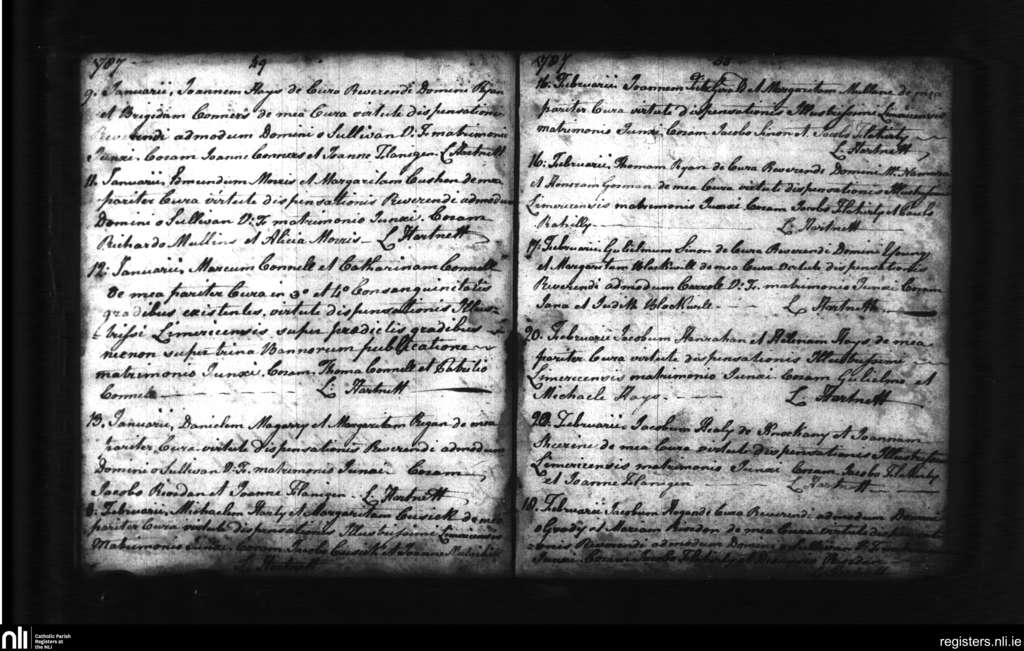 1787 49
9. Januarii, Joannem Hays de Cura Reverendi Domini Ryan
et Brigidam Conners de mea Cura virtute dispensationis
Reverendi admodum Domini o Sullivan V:F: matrimonio
Junxi. Coram Joanne Conners et Joanne Flanigen. L Hartnett
11. Januarii, Edmundum Morris et Margaritam Cushen de mea
pariter Cura virtute dispensationis Reverendi admodum
Domini o Sullivan V:F: matrimonio Junxi. Coram
Richardo Mullins et Alicia Morris - L Hartnett
12: Januarii, Marcum Connell et Catharinam Connell
de mea pariter Cura in 3o et 4o Consanguinitatis
gradibus existentes, virtute dispensationis Illus-
-trissi Limericensis super predictis gradibus
necnon super trina Bannorum publicatione
matrimonio Junxi. Coram Thoma Connell et Patritio
Connell L: Hartnett
13. Januarii, Danielem Magerry et Margaritam Regan de mea
pariter Cura virtute dispensationis Reverendi admodum
Domini o Sullivan V:F: matrimonio Junxi Coram
Jacobo Reardan et Joanne Flanigen. L: Hartnett
8: Februarii, Michaelem Harty et Margaritam Cusick de mea
pariter Cura virtute dispensationis Illustrissimi Limericensis
Matrimonio Junxi. Coram Jacobo Cusick et Joanne
L: Hartnett
1787 50
16. Februarii Joannem FitzGerald et Margaritam Mullane de mea
pariter Cura virtute dispensationis Illustrissimi Limericensis
matrimonio Junxi. Coram Jacobo Sinon et Jacobo Flahirty
L: Hartnett
16: Februarii, Thomam Ryan de Cura Reverendi Domini Mc Namara
et Honoram Gorman de mea Cura virtute dispensationis Illustrissimi
Limericensis matrimonio Junxi Coram Jacobo Flahirty et Jacobo
Rahilly L: Hartnett
17: Februarii Gulielmum Sinon de Cura Reverendi Domini Young
et Margaritam Blackwell de mea Cura virtute dispensationis
Reverendi admodum Carroll V:F: matrimonio Junxi Coram
Jana et Judith Blackwell L Hartnett
20. Februarii Jacobum Hanrahan et Helenam Hays de mea
pariter Cura virtute dispensationis Illustrissimi
Limericensis matrimonio Junxi Coram Gulielmo et
Michaele Hays. L Hartnett
20. Februarii Jacobum Healy de Knockany et Joannam
de mea Cura virtute dispensationis Illustrissimi
Limericensis matrimonio Junxi Coram Jacobo Flahirty
et Joanne Flanigen L: Hartnett
18. Februarii Jacobum de Cura Reverendi admodum Domini
o Grady et Mariam Reardon de mea Cura virtute dispensati-
-onis Reverendi admodum Domini o Sullivan V:F:
Junxi. Coram Jacobo Flahirty et
nli
Catholic Parish
Registers at
the NLI
registers.nli.ie